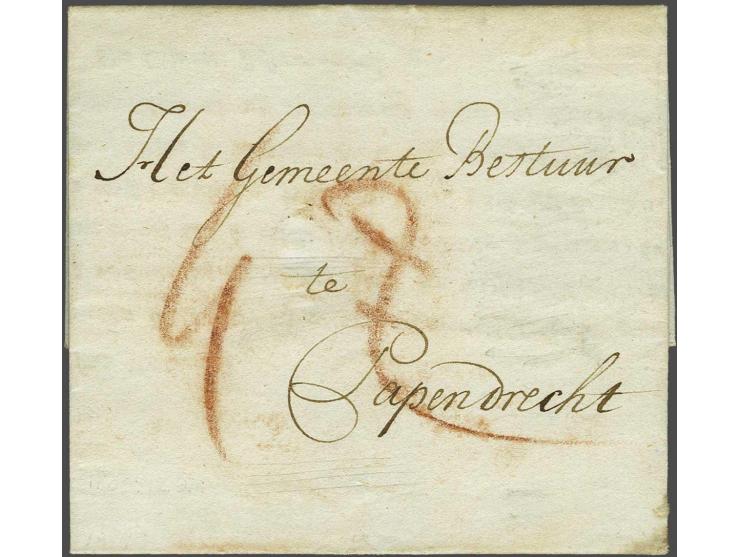 Het Gemeente Bestuur
te
Papendrecht